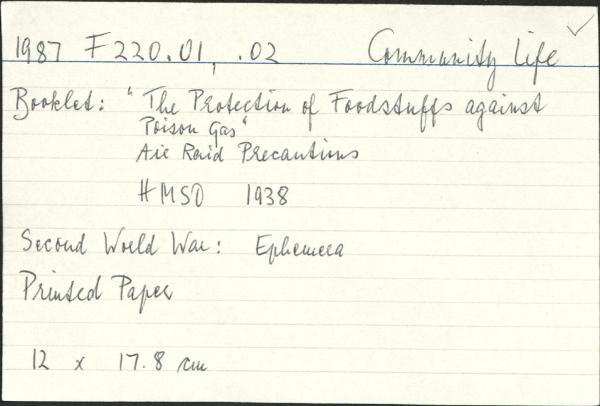 1987 F220.01, .02 Community Life
Booklet: "The Protection of Foodstuffs against
Poison Gas"
Air Raid Precautions
HMSO 1938
Second World War: Ephemera
Printed Paper
12 x 17.8 cm